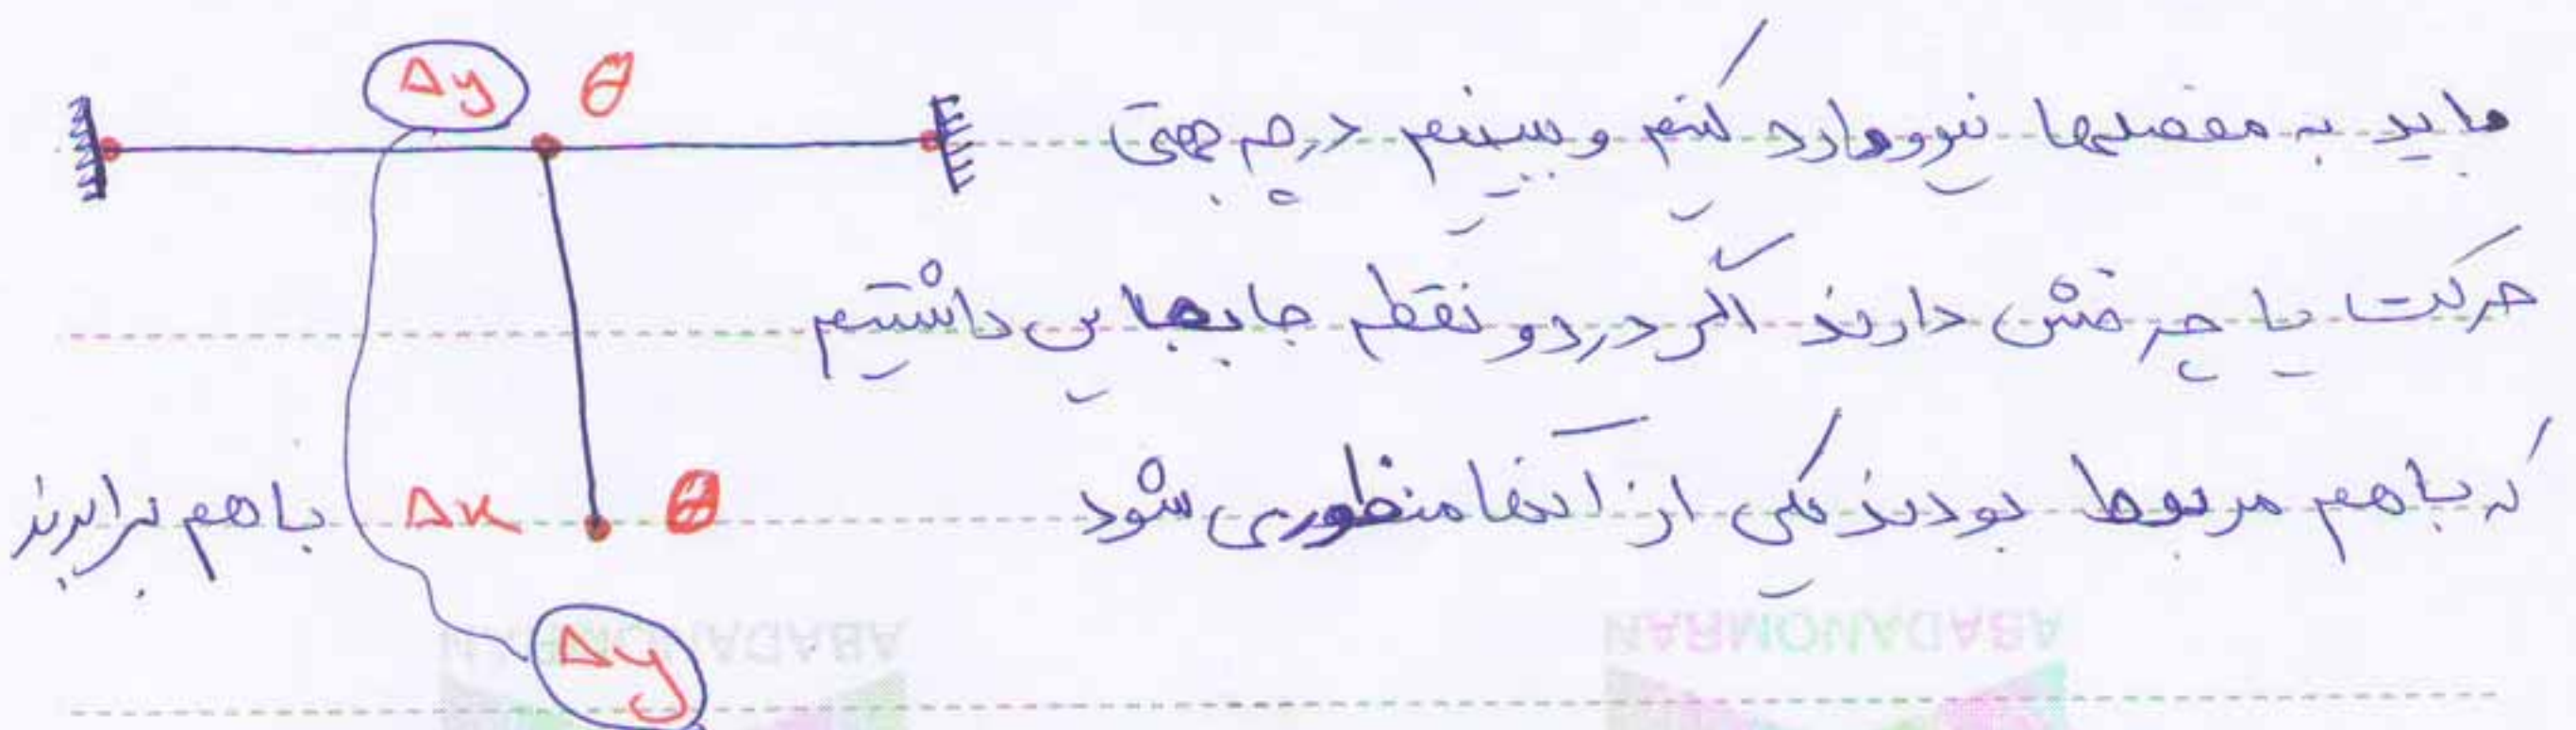 Δy θ
ما باید به مفصلها نیرو وارد کنیم و ببینیم در چه جهتی
حرکت یا چرخش دارند اگر در دو نقطه جابجایی داشتیم
که با هم مربوط بودند یکی از آنها منظور می شود
Δx θ با هم برابرند
Δy